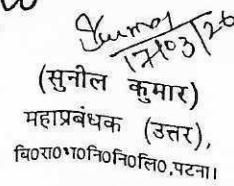 17/03/26
(सुनील कुमार)
महाप्रबंधक (उत्तर),
बि०रा०भ०नि०नि०लि०,पटना।